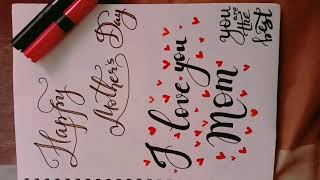 Happy
Mother's Day
I love you
Mom
you
are
the
best